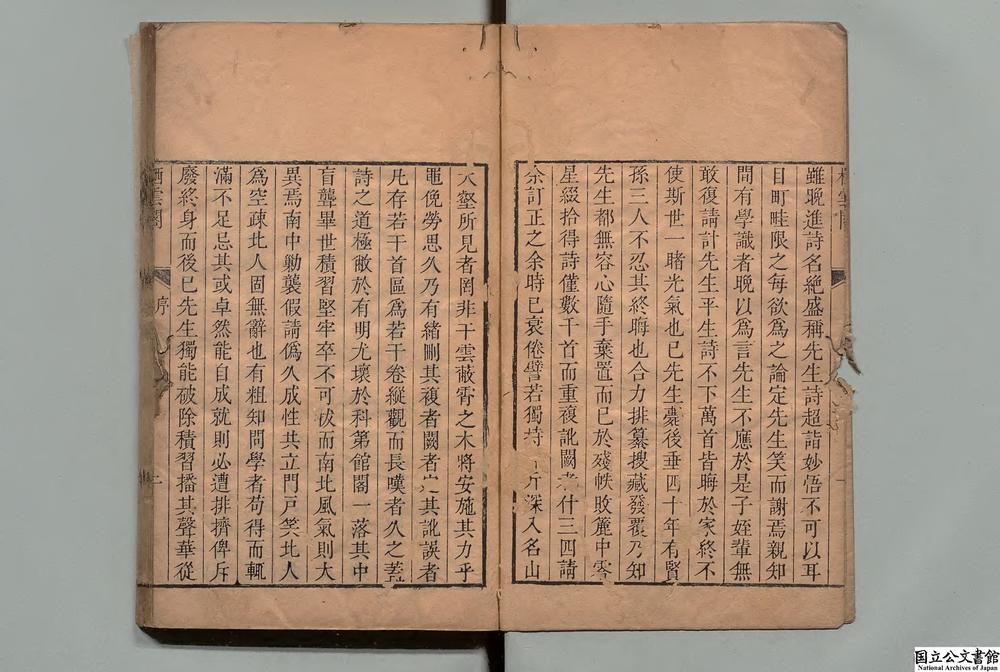 雖晚進詩名絶盛稱先生詩超詣妙悟不可以耳
目町畦限之每欲爲之論定先生笑而謝焉親知
間有學識者晚以爲言先生不應於是子姪輩無
敢復請計先生平生詩不下萬首皆晦於家終不
使斯世一睹光氣也已先生薨後垂四十年有賢
孫三人不忍其終晦也合力排纂搜藏發覆乃知
先生都無容心隨手棄置而已於殘帙敗簏中零
星綴拾得詩僅數千首而重複訛闕者什三四請
余訂正之余時已衰倦譬若獨持斤深入名山
大壑所見者罔非干雲蔽霄之木將安施其力乎
黽俛勞思久乃有緒刪其複者闕者定其訛誤者
凡存若干首區爲若干卷縱觀而長嘆者久之葢
詩之道極敝於有明尤壞於科第館閣一落其中
盲聾畢世積習堅牢卒不可祓而南北風氣則大
異焉南中勦襲假請僞久成性其立門戶笑北人
爲空疎北人固無辭也有粗知問學者苟得而輒
滿不足忌其或卓然能自成就則必遭排擠俾斥
廢終身而後已先生獨能破除積習播其聲華從
雲閣
序